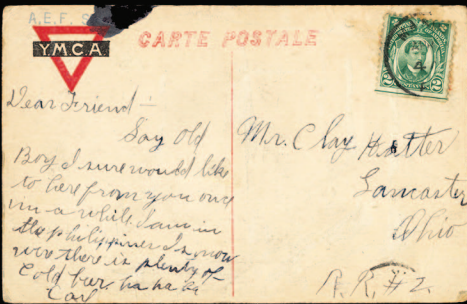 A.E.F.
Y.M.C.A
CARTE POSTALE
2 2
Dear Friend -
Say Old
Boy I sure would like
to here from you once
in a while I am in
the philippines I know
were there is plenty of
Cold beer ha ha ha
Mr. Clay
Lancaster
Ohio
R.R. #2.